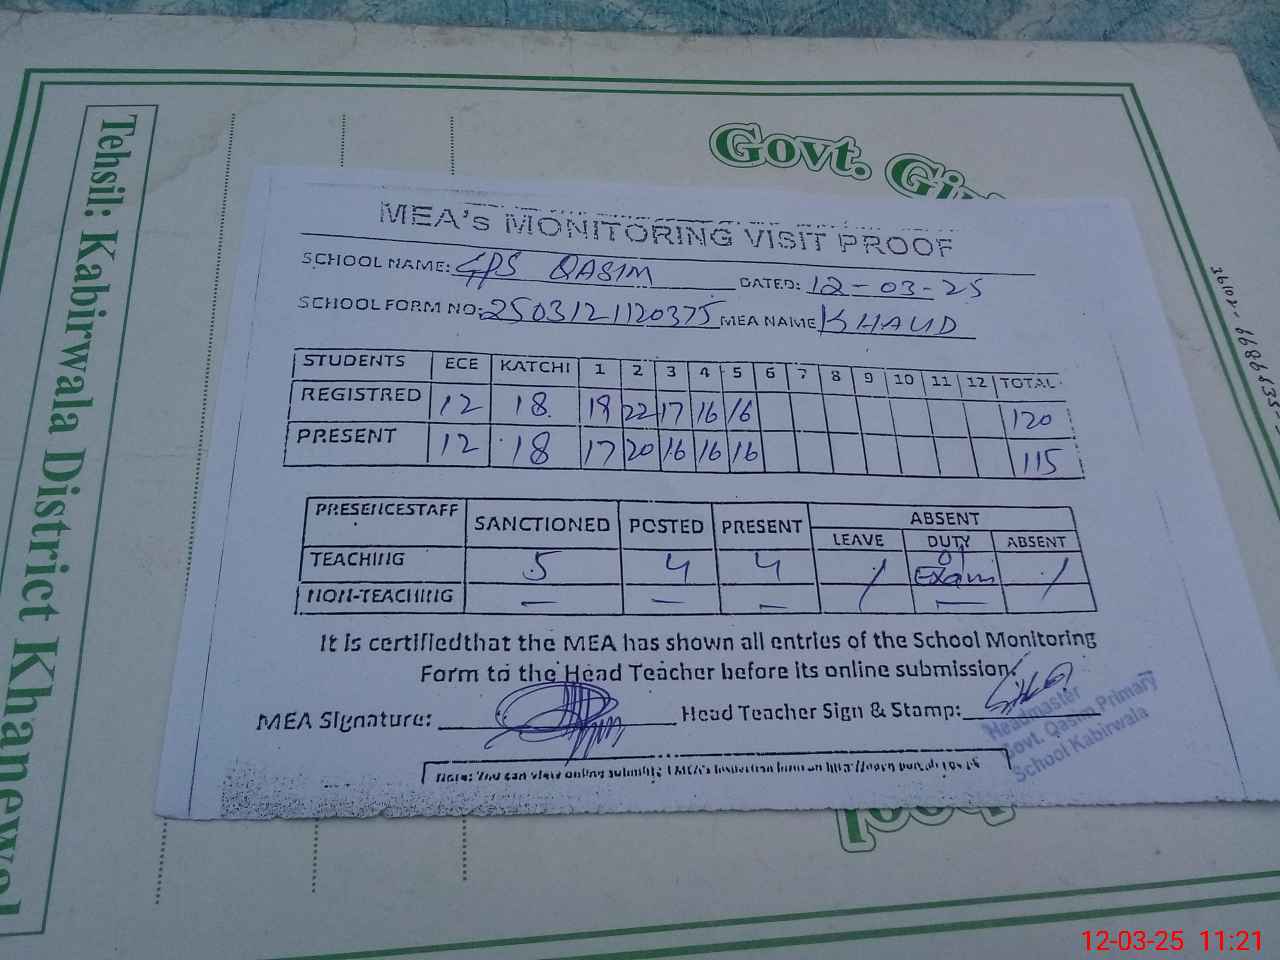 Tehsil: Kabirwala District Khanewal
Govt. Gir
MEA's MONITORING VISIT PROOF
SCHOOL NAME: GPS QASIM DATED: 12-03-25
SCHOOL FORM NO: 2503121120375 MEA NAME KHALID
STUDENTS ECE KATCHI 1 2 3 4 5 6 7 8 9 10 11 12 TOTAL
REGISTRED 12 18 19 22 17 16 16 120
PRESENT 12 18 17 20 16 16 16 115
PRESENCESTAFF SANCTIONED POSTED PRESENT ABSENT
LEAVE DUTY ABSENT
TEACHING 5 4 4 / 01 Exam /
NON-TEACHING — — — —
It is certifiedthat the MEA has shown all entries of the School Monitoring
Form to the Head Teacher before its online submission.
MEA Signature: Head Teacher Sign & Stamp:
Headmaster
Govt. Qasim Primary
School Kabirwala
Note: You can view online
12-03-25 11:21